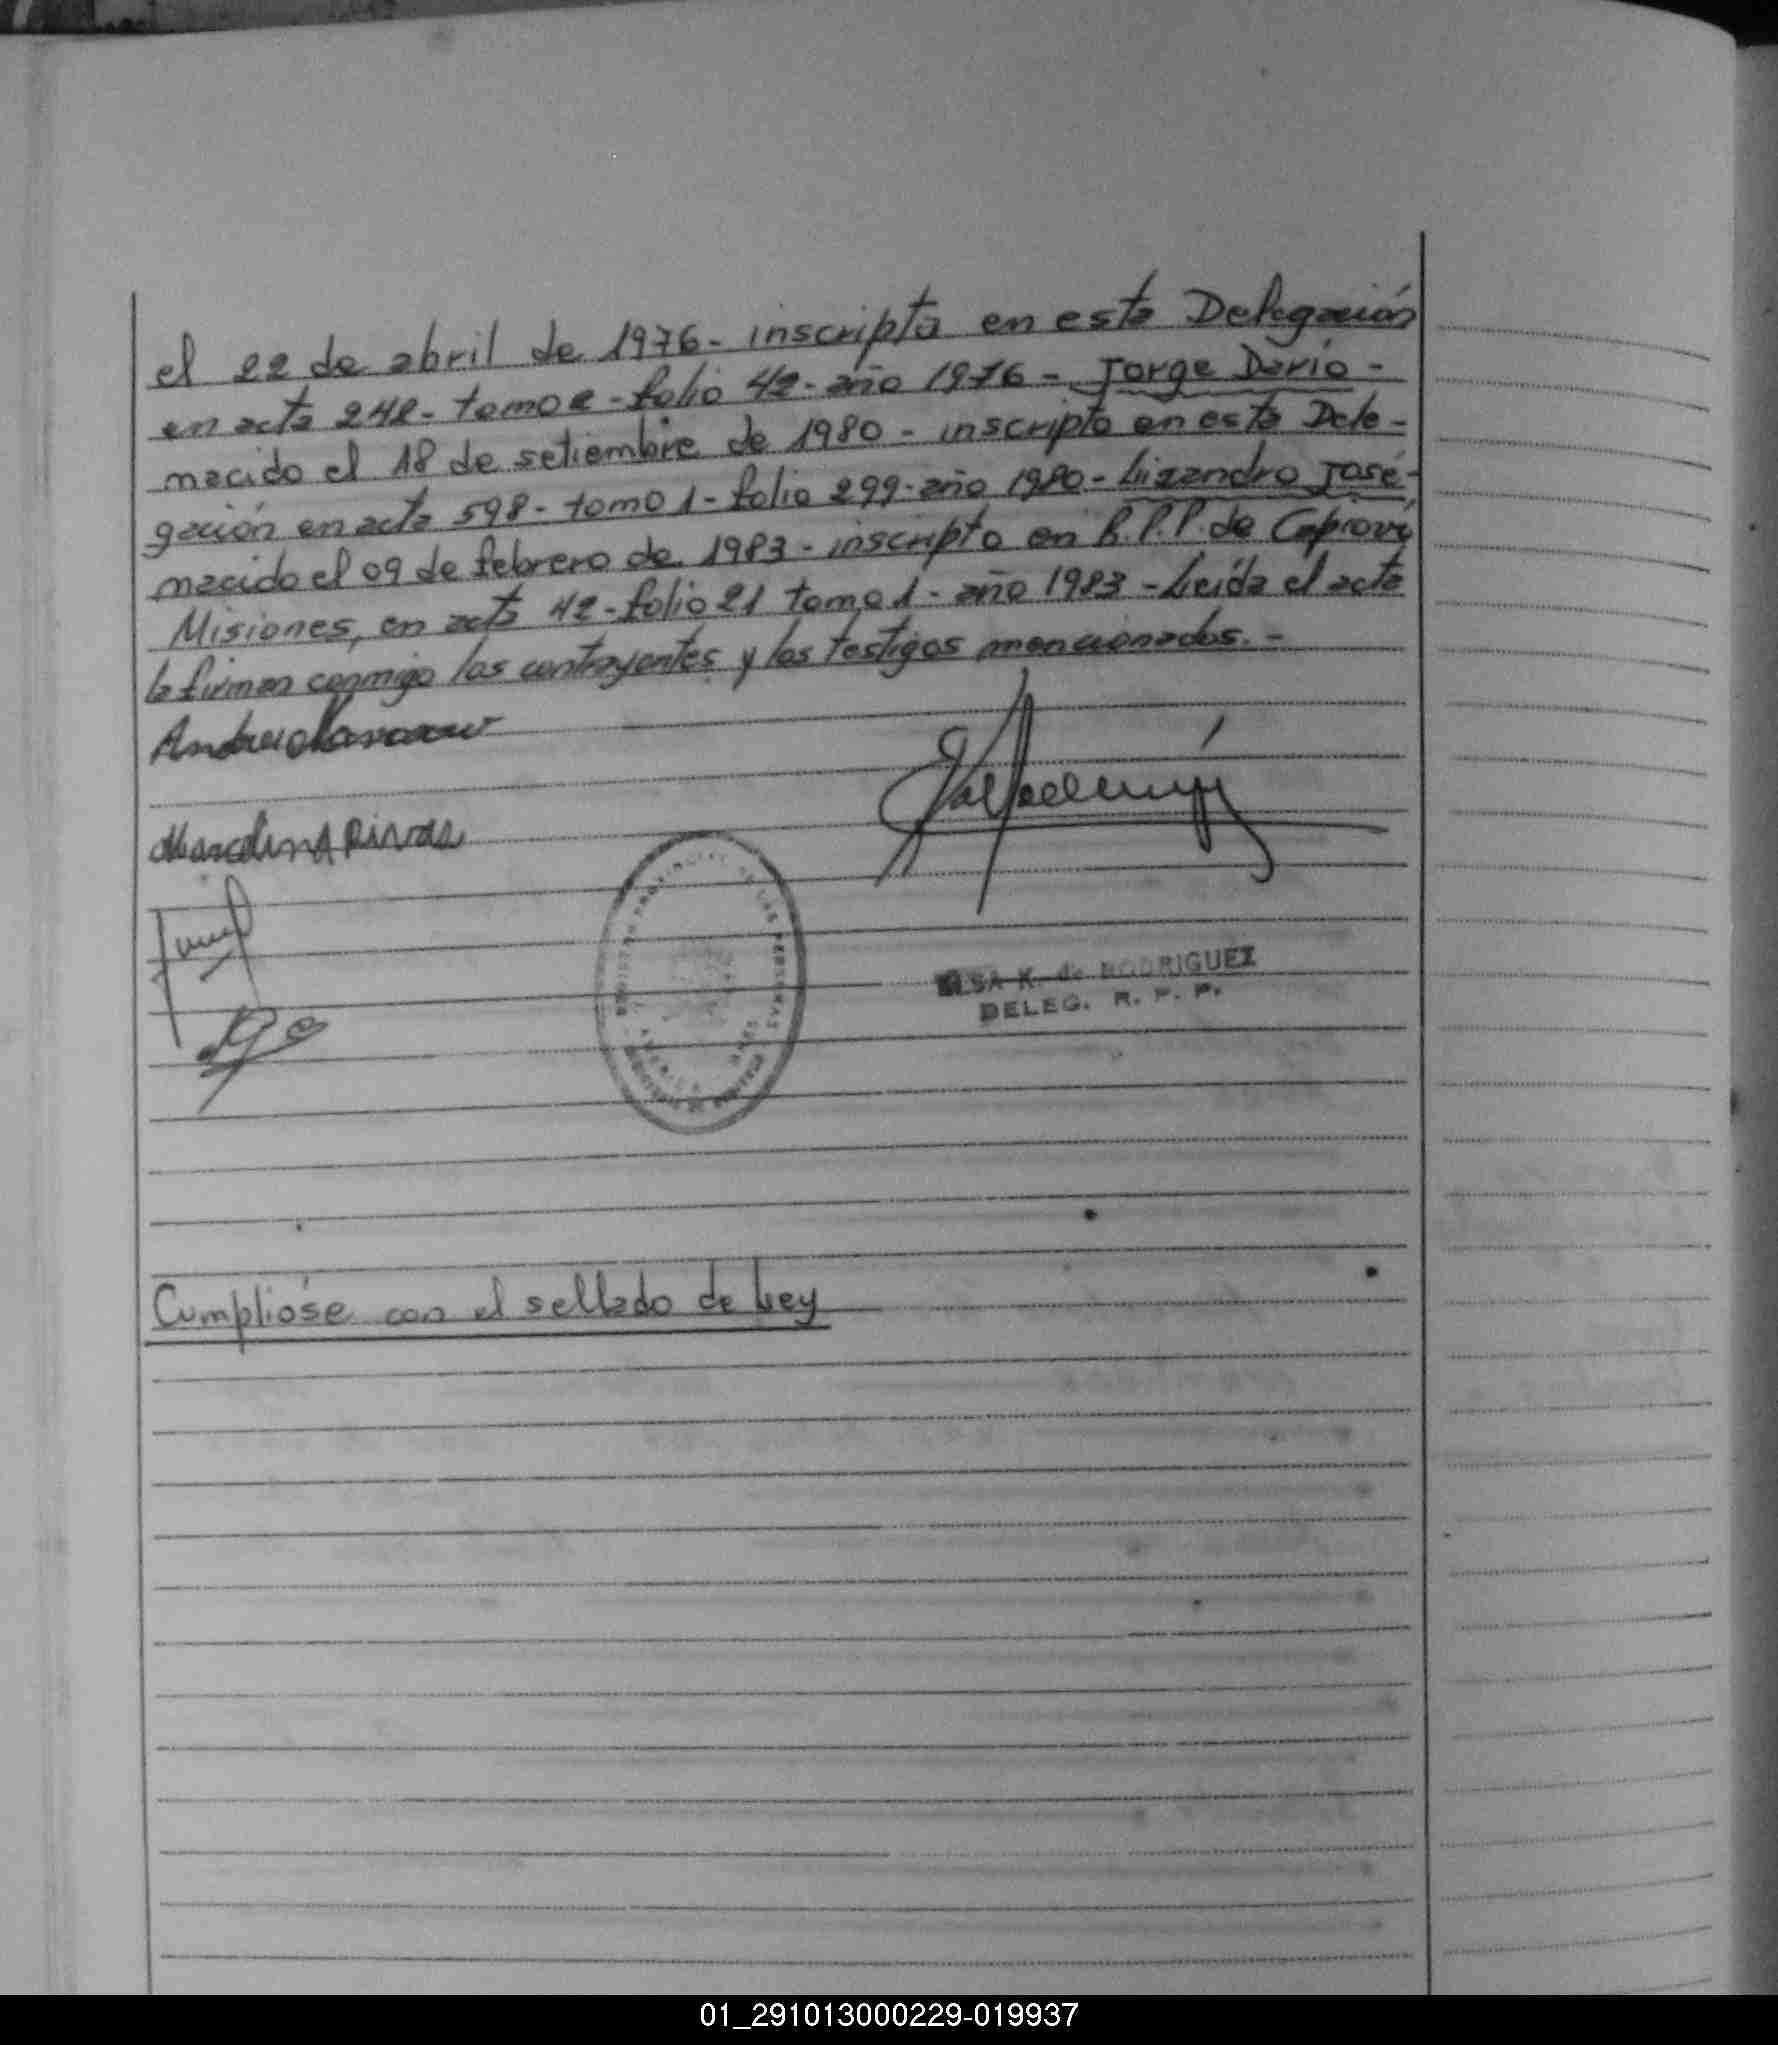 el 22 de abril de 1976- inscripta en esta Delegación
en acta 242- tomo 2- folio 42- año 1976- Jorge Darío-
nacido el 18 de setiembre de 1980- inscripto en esta Dele-
gación en acta 598- tomo 1- folio 299- año 1980- Lizandro José-
nacido el 09 de febrero de 1983- inscripto en R.P.P. de Capioví
Misiones, en acta 42- folio 21 tomo 1- año 1983- Leída el acta
la firman conmigo los contrayentes y los testigos mencionados.-
Marcelina Rivas
K. de RODRIGUEZ
DELEG. R. P. P.
Cumplióse con el sellado de Ley
01_291013000229-019937